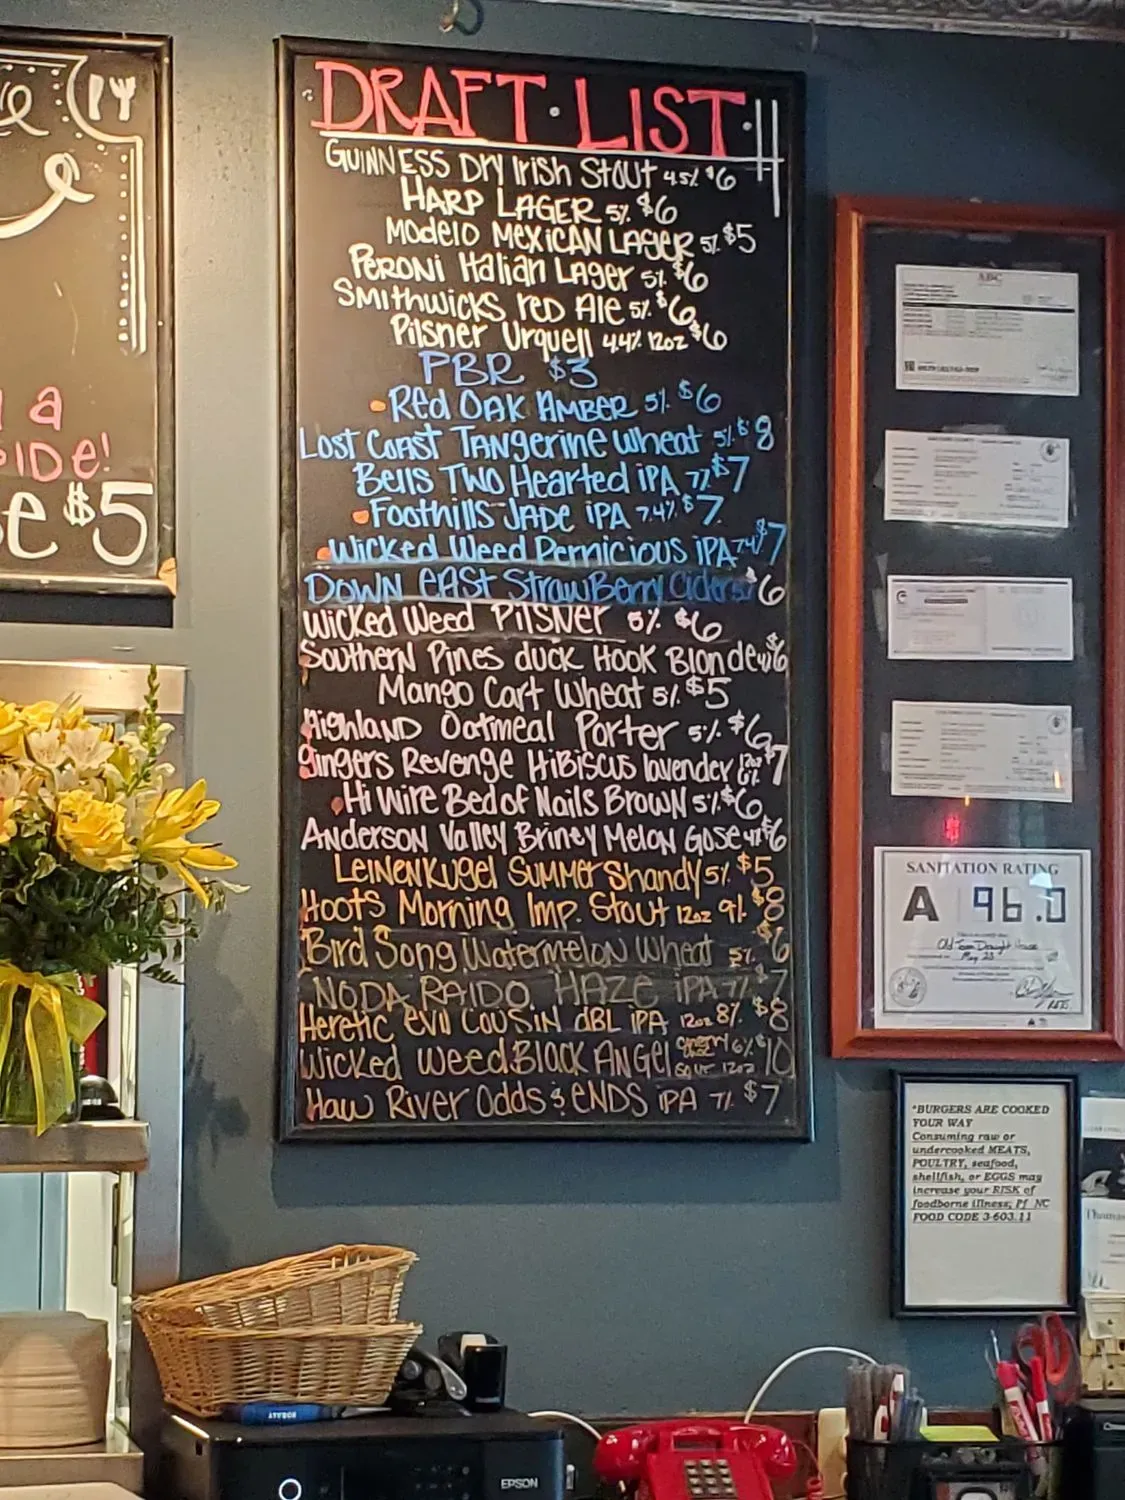 DRAFT · LIST ·
GUINNESS Dry Irish Stout 4.5% $6
HARP LAGER 5% $6
Modelo MEXICAN LAGER 5% $5
PERONi Italian LAGER 5% $6
Smithwicks red Ale 5% $6
Pilsner Urquell 4.4% 12oz $6
PBR $3
Red OAK AMBER 5% $6
Lost Coast TANGerine Wheat 5% $8
Bells Two Hearted iPA 7% $7
Foothills JADE iPA 7.4% $7
Wicked Weed Pernicious iPA 7.4% $7
DOWN EAST StrawBerry Cider $6
Wicked Weed PilSNer 5% $6
Southern Pines duck Hook Blonde $6
Mango Cart Wheat 5% $5
Highland Oatmeal Porter 5% $6
Gingers Revenge HiBiscus lavender 12oz $7
Hi Wire Bed of Nails BROWN 5% $6
Anderson Valley Briney Melon Gose $6
LEINENKUgel SUMMer Shandy 5% $5
Hoots Morning Imp. Stout 12oz 9% $8
Bird Song Watermelon Wheat 5% $6
NODA RAIDO HAZE iPA 7% $7
Heretic evil Cousin dBL iPA 12oz 8% $8
Wicked Weed Black ANGel cherry sour 6% 12oz $10
Haw River Odds & ENDS iPA 7% $7
a
SIDe!
$5
ABC
SANITATION RATING
A 96.0
Old Town Draught House
May 23
*BURGERS ARE COOKED
YOUR WAY
Consuming raw or
undercooked MEATS,
POULTRY, seafood,
shellfish, or EGGS may
increase your RISK of
foodborne illness; Pf NC
FOOD CODE 3-603.11
Thomas
EPSON